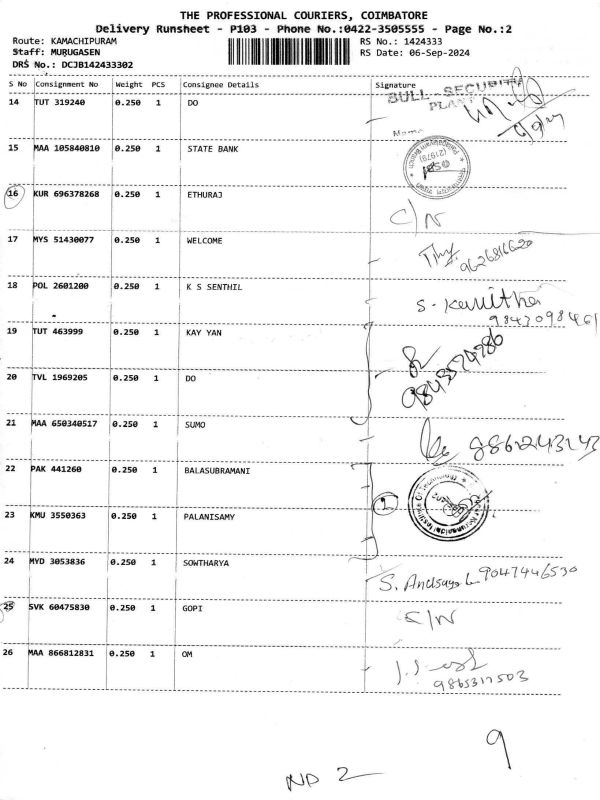 THE PROFESSIONAL COURIERS, COIMBATORE
Delivery Runsheet - P103 - Phone No.:0422-3505555 - Page No.:2
Route: KAMACHIPURAM RS No.: 1424333
Staff: MURUGASEN RS Date: 06-Sep-2024
DRS No.: DCJB142433302
S No Consignment No Weight PCS Consignee Details Signature
14 TUT 319240 0.250 1 DO
BULL - SECURITY
PLANT
Name
15 MAA 105840810 0.250 1 STATE BANK
SBI
16 KUR 696378268 0.250 1 ETHURAJ
C/N
17 MYS 51430077 0.250 1 WELCOME
9626816620
18 POL 2601200 0.250 1 K S SENTHIL
S. Kavitha
9843098461
19 TUT 463999 0.250 1 KAY YAN
9843574986
20 TVL 1969205 0.250 1 DO
21 MAA 650340517 0.250 1 SUMO
8861243143
22 PAK 441260 0.250 1 BALASUBRAMANI
2
23 KMU 3550363 0.250 1 PALANISAMY
24 MYD 3053836 0.250 1 SOWTHARYA
9047446530
25 SVK 60475830 0.250 1 GOPI
C/N
26 MAA 866812831 0.250 1 OM
9865317503
9
ND 2